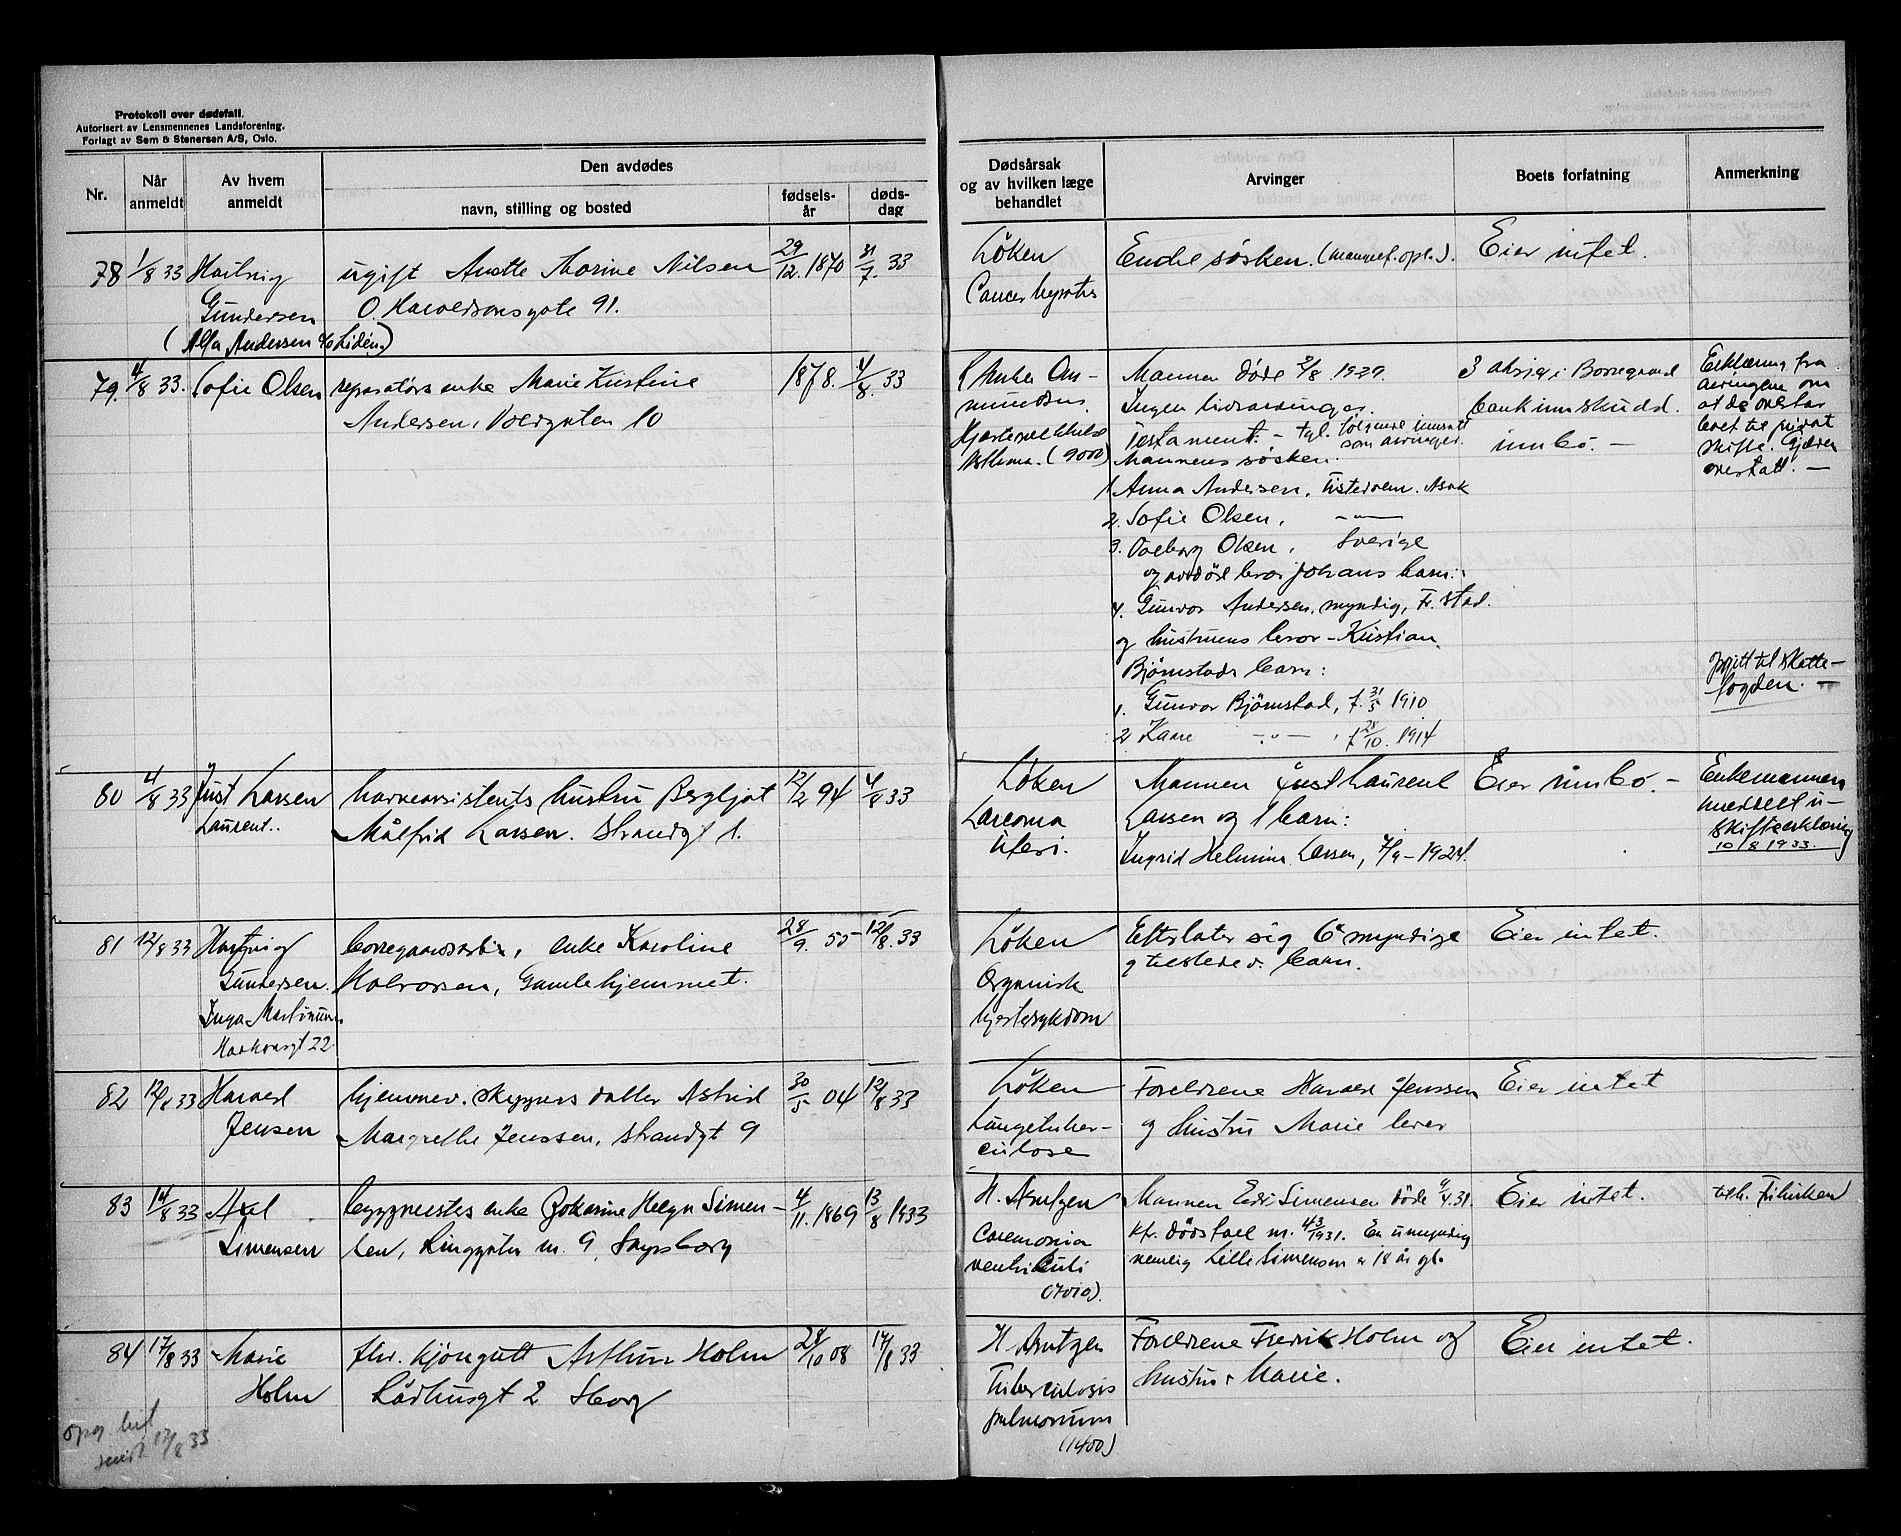 Protokoll over dødsfall.
Autorisert av Lensmennenes Landsforening.
Forlagt av Sem & Stenersen A/S, Oslo.
Nr.
Når anmeldt
Av hvem anmeldt
Den avdødes
navn, stilling og bosted
fødsels-år
døds-dag
Dødsårsak og av hvilken læge behandlet
Arvinger
Boets forfatning
Anmerkning
78 1/8 33 Hartvig ugift Anette Marine Nilsen 29/12. 1870 31/7. 33 Löken Endel søsken. Eier intet.
Gundersen O. Haraldsonsgate 91. Cancer
(Alfa Andersen
79. 4/8 33. Sofie Olsen reparatørs enke Marie Kristine 1878. 4/8. 33 Mannen døde 2/8 1929.
Andersen, Voldgaten 10 Ingen livsarvinger. bankinnskudd.
Testament. - følgende innsatt som arvinger. innbo. -
Asthma. (900) Mannens søsken.
Erklæring fra
arvingene om
at de overtar
boet til privat
skifte.
1. Anna Andersen, Tistedalen. Asak
2. Sofie Olsen, -"-
3. Valborg Olsen, Sverige
og avdøde bror Johans barn:
4. Gunvor Andersen, myndig, Fr.stad.
og hustruens bror - Kristian
Bjørnstads barn:
1. Gunvor Bjørnstad, f. 31/5 1910
2 Kaare -"-, f 28/10. 1914
opgitt til skatte-
fogden. -
80 4/8 33 Just Larsen havneassistents hustru Bergljot 12/2 94 4/8 33 Löken Mannen Just Laurent Eier innbo - Enkemannen
Laurent.. Målfrid Larsen. Strandgt 1. Sarcoma Larsen og 1 barn: meddelt u-
uteri. Ingrid Helmine Larsen, 7/9 - 1924. skifteerklæring
10/8 1933.
81 12/8 33 Hartvig enke Karoline 28/9. 55 12/8. 33 Löken Efterlater sig 6 myndige Eier intet.
Gundersen. Halvorsen, Gamlehjemmet. Organisk og tilstedev. barn.
Inga hjertesykdom
Haakonsgt 22
82 12/8 33 Harald hjemmev. skippers datter Astrid 30/5 04 12/8 33 Löken Foreldrene Harald Jenssen Eier intet
Jensen Margrethe Jenssen, Strandgt 9 Lungetuber- og hustru Marie lever
culose
83 14/8 33 Axel byggmesters enke Johanne Helga Simen- 4/11. 1869 13/8 1933 H. Arntzen Mannen Simensen døde 9/4 31. Eier intet.
Simensen sen, Linggaten m. 9, Sarpsborg kfr. dødsfall nr. 43/1931. En umyndig
ventriculi nemlig Lille Simensen er 18 år gl.
84 17/8 33 Marie fhv. Arthur Holm 24/10 08 17/8 33 H. Arntzen Foreldrene Fredrik Holm og Eier intet.
Holm Rådhusgt 2 Sborg Tuberculosis hustru Marie.
pulmonum
(1400)
12/8 33